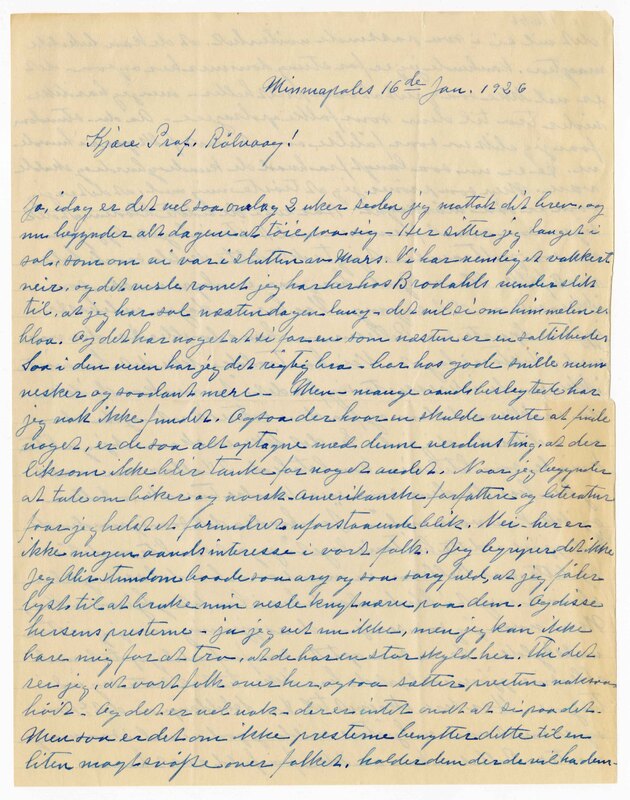 Minnapoles 16de Jan. 1926
Kjære Prof. Rölvaag!
Ja, idag er det vel saa omlag 2 uker siden jeg mottok dit brev, og
nu begynder alt dagene at töie paa sig - Her sitter jeg langet i
sol, som om vi var i slutten av Mars. Vi har nemlig et vakkert
veir, og det vesle romet jeg har her hos Brodahls vender slik
til, at jeg har sol næsten dagen lang - det vil si om himmelen er
blaa. Og det har noget at si for en som næsten er en soltilbeder
Saa i den veien har jeg det rigtig bra - bor hos gode snille men-
nesker og saadant mere - Men - mange aandsbeslegtede har
jeg nok ikke fundet. Ogsaa der hvor en skulde vente at finde
noget, er de saa alt optagne med denne verdens ting, at der
liksom ikke blir tanke for noget andet. Naar jeg begynder
at tale om böker og norsk-amerikanske forfattere og literatur
faar jeg helst et forundret uforstaaende blik. Nei - her er
ikke megen aandsinteresse i vort folk. Jeg begriper det ikke
Jeg blir stundom baade saa arg og saa sorgfuld, at jeg föler
lyst til at bruke min vesle knytnæve paa dem. Og disse
hersens presterne - ja jeg vet nu ikke, men jeg kan ikke
bare mig for at tro, at de har en stor skyld her. Thi det
ser jeg, at vort folk over her, ogsaa sætter presten noksaa
höit. Og det er vel nok - der er intet ondt at si paa det.
Men saa er det om ikke presterne benytter dette til en
liten magtsvöpe over folket, holder dem der de vil ha dem -